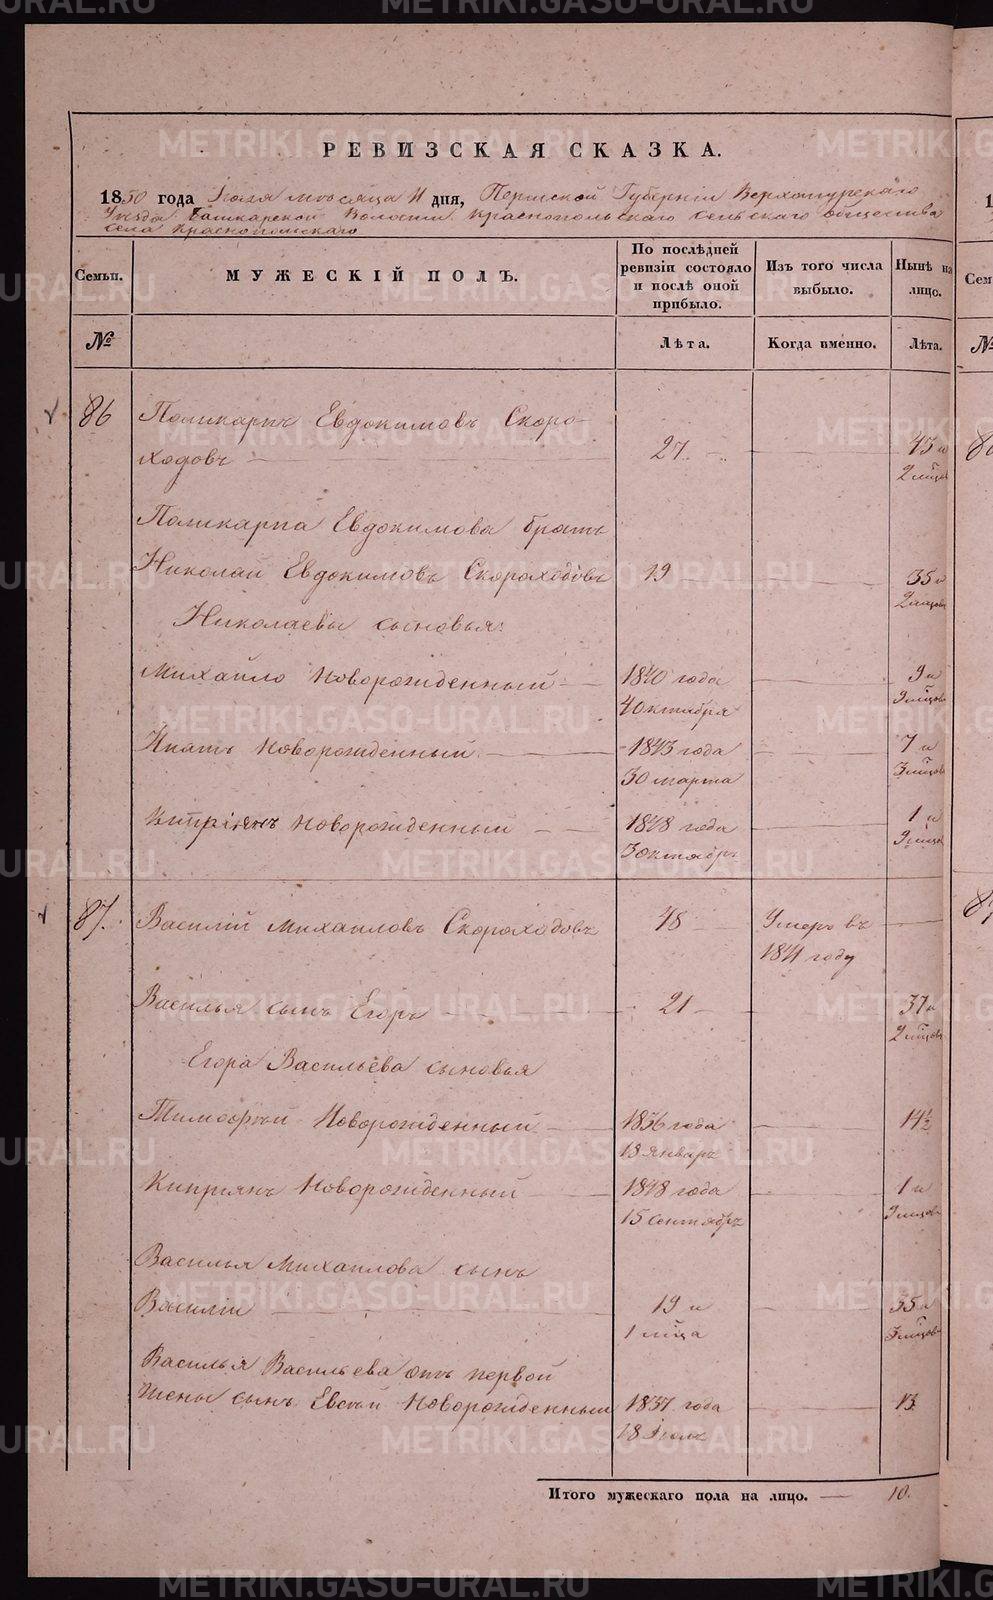 РЕВИЗСКАЯ СКАЗКА.
1850 года Іюля мѣсяца 11 дня, Пермской Губерніи Верхотурскаго
Уѣзда Башкарской Волости Краснопольскаго сельскаго общества
села Краснопольскаго
Семьи. МУЖЕСКІЙ ПОЛЪ. По послѣдней ревизіи состояло и послѣ оной прибыло. Изъ того числа выбыло. Нынѣ на лицо.
№ Лѣта. Когда именно. Лѣта.
86 Поликарпъ Евдокимовъ Скоро-
ходовъ 27 45 и
2 мѣцов
Поликарпа Евдокимова братъ
Николай Евдокимовъ Скороходовъ 19 35 и
2 мѣцов
Николаевы сыновья:
Михайло Новорожденный 1840 года 9 и
4 октября 9 мѣцов
Игнатъ Новорожденный 1843 года 7 и
30 марта 3 мѣцов
Кипріянъ Новорожденный 1848 года 1 и
3 октябр. 9 мѣцов
87. Василій Михаиловъ Скороходовъ 48 Умеръ въ
1841 году
Василья сынъ Егоръ 21 37 и
2 мѣцов
Егора Васильева сыновья
Тимофѣй Новорожденный 1836 года 14½
13 январъ
Кипріянъ Новорожденный 1848 года 1 и
15 сентябрь 9 мѣцов
Василья Михаилова сынъ
Василій 19 и 35 и
1 мѣца 3 мѣцов
Василья Васильева отъ первой
жены сынъ Евсей Новорожденный 1837 года 13
18 Іюль
Итого мужескаго пола на лицо. 10.